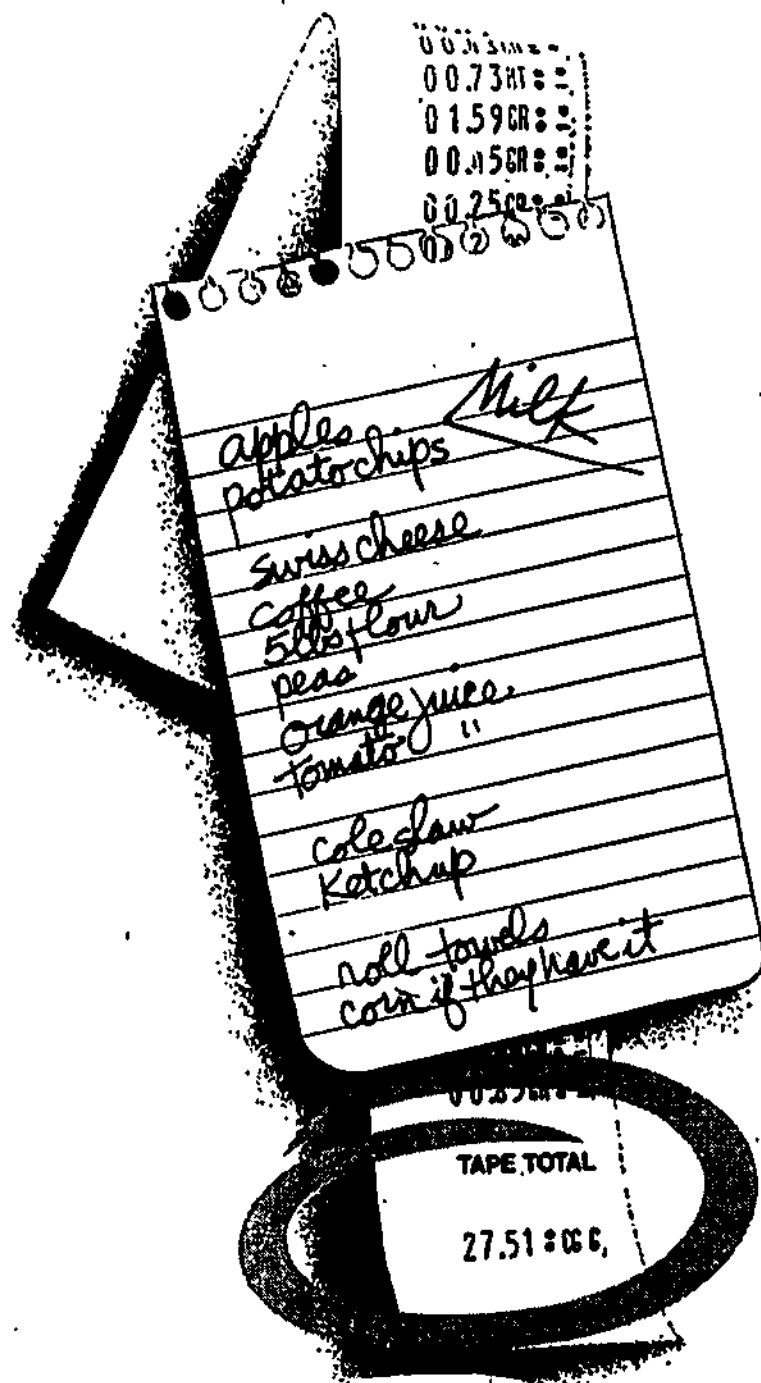 00.73MT
01.59GR
00.45GR
00.25GR
Milk
apples
potato chips
swiss cheese
coffee
5lbs flour
peas
orange juice
tomato "
cole slaw
Ketchup
roll towels
corn if they have it
TAPE TOTAL
27.51